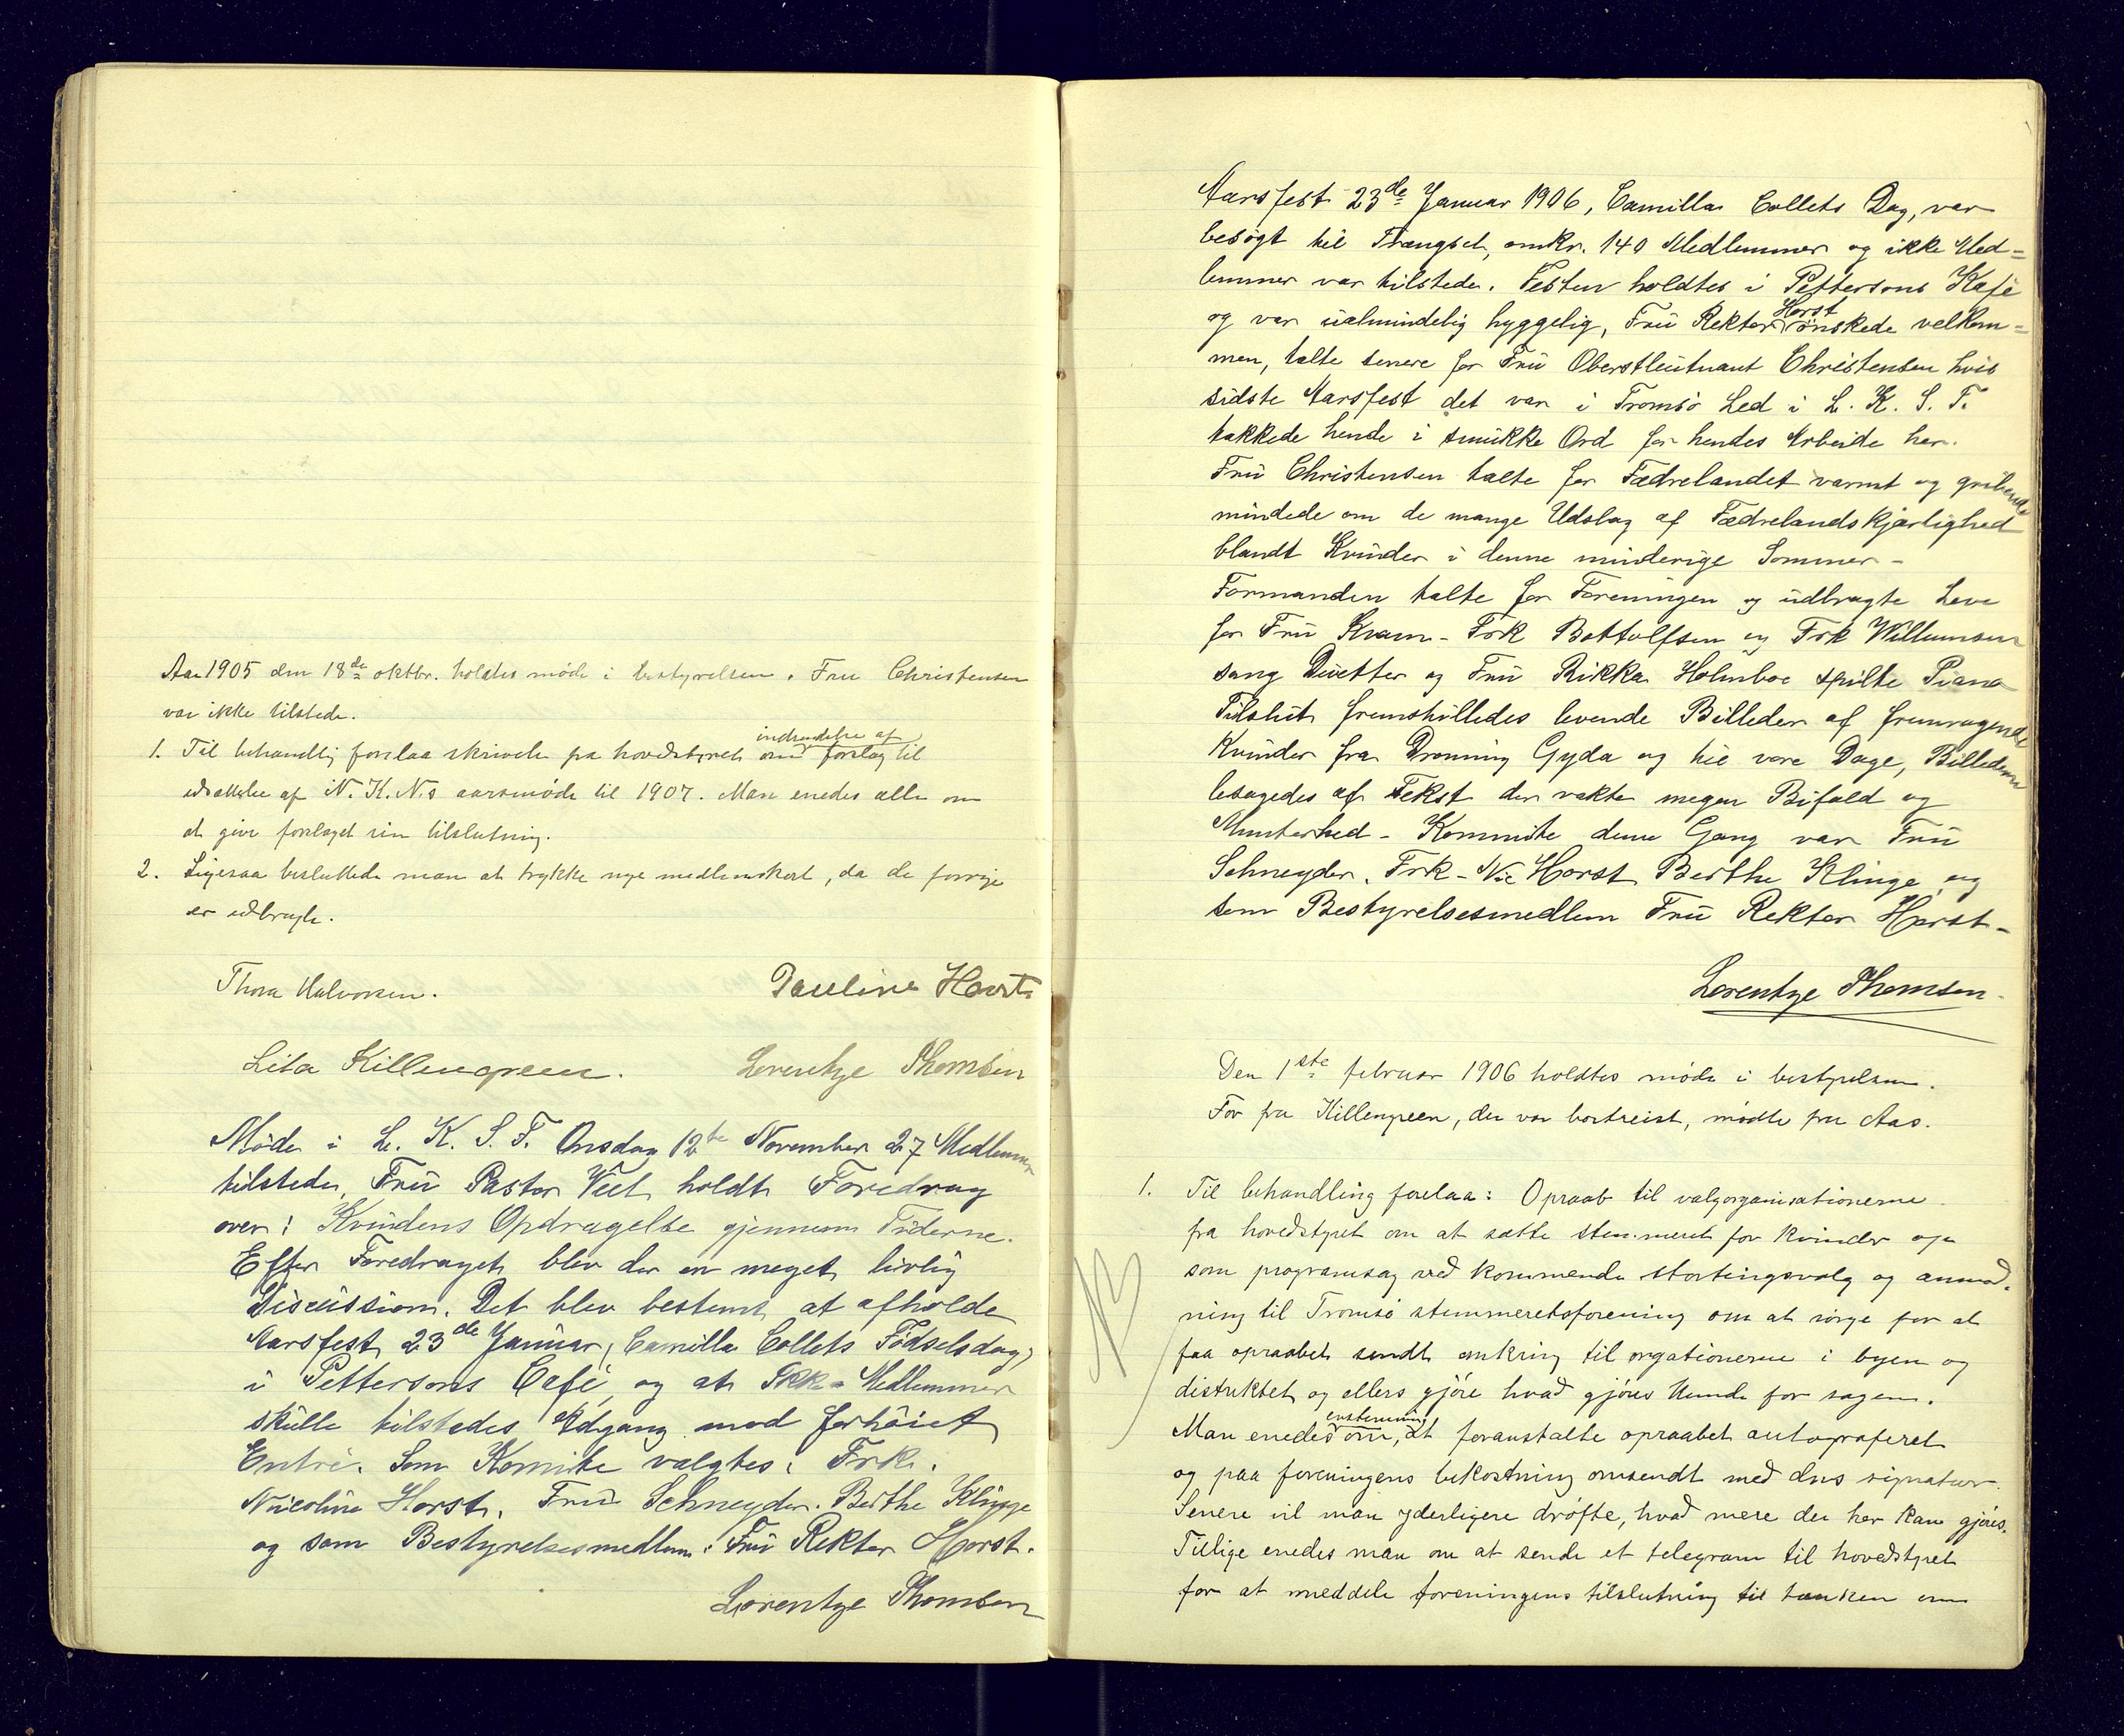 Aar 1905 den 18de oktbr. holdtes møde i bestyrelsen. Fru Christensen
var ikke tilstede.
1. Til behandling forelaa skrivelse fra hovedstyret om indsendelse af forslag til
udsættelse af N. K. N.s aarsmøde til 1907. Man enedes alle om
at give forslaget sin tilslutning.
2. Ligesaa besluttede man at trykke nye medlemskort, da de forrige
er udbrugte.
Thora Halvorsen. Pauline Horst
Lita Killengreen. Lorentze Thomsen
Møde i L. K. S. F. Onsdag 12te November 27 Medlemmer
tilstede, Frü Pastor Veel holdt Foredrag
over: Kvindens Opdragelse gjennem Tiderne.
Efter Foredraget blev der en meget livlig
Discüssion. Det blev bestemt at afholde
Aarsfest 23de Januar, Camilla Collets Fødselsdag,
i Pettersons Café og at Ikke-Medlemmer
skülle tilstedes Adgang mod forhøiet
Entré. Som Komite valgtes: Frk.
Nicoline Horst. Frü Schneyder. Berthe Klinge
og som Bestyrelsesmedlem: Frü Rektor Horst.
Lorentze Thomsen
Aarsfest 23de Januar 1906, Camilla Collets Dag, var
besøgt til Trængsel, omkr. 140 Medlemmer og ikke Med=
lemmer var tilstede. Festen holdtes i Pettersons Kafé
og var üalmindelig hyggelig, Frü Rektor Horst ønskede velkom=
men, talte senere for Frü Oberstleütnant Christensen hvis
sidste Aarsfest det var i Tromsø Led i L. K. S. F.
takkede hende i smükke Ord for hendes Arbeide her.
Frü Christensen talte for Fædrelandet varmt og gribende
mindede om de mange Udslag af Fædrelandskjærlighed
blandt Kvinder i denne minderige Sommer -
Formanden talte for Foreningen og üdbragte Leve
for Frü Kvam - Frk Bottolfsen og Frk Willumsen
sang Düetter og Frü Rikka Holmboe spilte Piano
Tilslüt fremstilledes levende Billeder af fremragende
Kvinder fra Dronning Gyda og til vore Dage, Billederne
ledsagedes af Tekst der vakte megen Bifald og
Munterhed - Kommite denne Gang var Frü
Schneyder, Frk - Nic Horst Berthe Klinge og
som Bestyrelsesmedlem Frü Rektor Horst -
Lorentze Thomsen.
Den 1ste februar 1906 holdtes møde i bestyrelsen.
For fru Killengreen, der var bortreist, mødte fru Aas.
1. Til behandling forelaa: Opraab til valgorganisationerne
fra hovedstyret om at sætte stemmeret for kvinder op
som programsag ved kommende stortingsvalg og anmod.
NB
ning til Tromsø stemmeretsforening om at sørge for at
faa opraabet sendt omkring til orgationerne i byen og
distriktet og ellers gjøre hvad gjøres kunde for sagen.
Man enedes enstemmig om, at foranstalte opraabet autograferet
og paa foreningens bekostning omsendt med dens signatur.
Senere vil man yderligere drøfte, hvad mere der her kan gjøres.
Tillige enedes man om at sende et telegram til hovedstyret
for at meddele foreningens tilslutning til tanken om